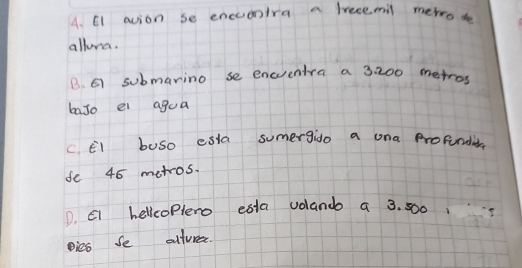 A. El avion se encuentra a trecemil metro de
altura.
B. El submarino se encuentra a 3.200 metros
bajo el agua
C. El buso esta sumergido a una Profundida
de 45 metros.
D. El helicoPtero esta volando a 3.500
pies de altura.